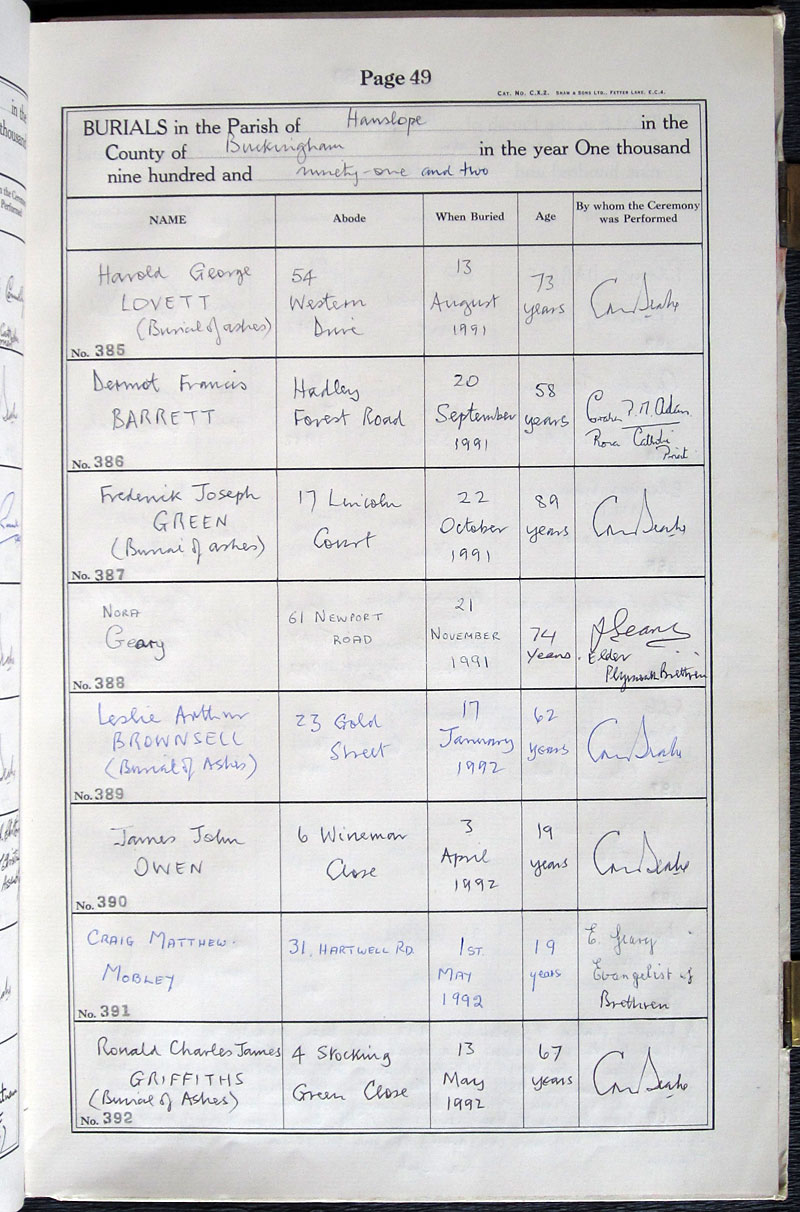 Page 49
CAT. No. C.X.2. SHAW & SONS LTD., FETTER LANE, E.C.4.
BURIALS in the Parish of Hanslope in the
County of Buckingham in the year One thousand
nine hundred and ninety-one and two
NAME Abode When Buried Age By whom the Ceremony was Performed
Harold George
LOVETT
(Burial of ashes)
No. 385
54
Western
Drive
13
August
1991
73
years
Dermot Francis
BARRETT
No. 386
Hadley
Forest Road
20
September
1991
58
years
Adam
Priest
Frederik Joseph
GREEN
(Burial of ashes)
No. 387
17 Lincoln
Court
22
October
1991
89
years
NORA
Geary
No. 388
61 NEWPORT
ROAD
21
NOVEMBER
1991
74
Years.
Elder
Plymouth Brethren
Leslie Arthur
BROWNSELL
(Burial of Ashes)
No. 389
23 Gold
Street
17
January
1992
62
years
James John
OWEN
No. 390
6 Wineman
Close
3
April
1992
19
years
CRAIG MATTHEW.
MOBLEY
No. 391
31, HARTWELL RD.
1ST
MAY
1992
19
years
E. Geary
Evangelist of
Brethren
Ronald Charles James
GRIFFITHS
(Burial of Ashes)
No. 392
4 Stocking
Green Close
13
May
1992
67
years